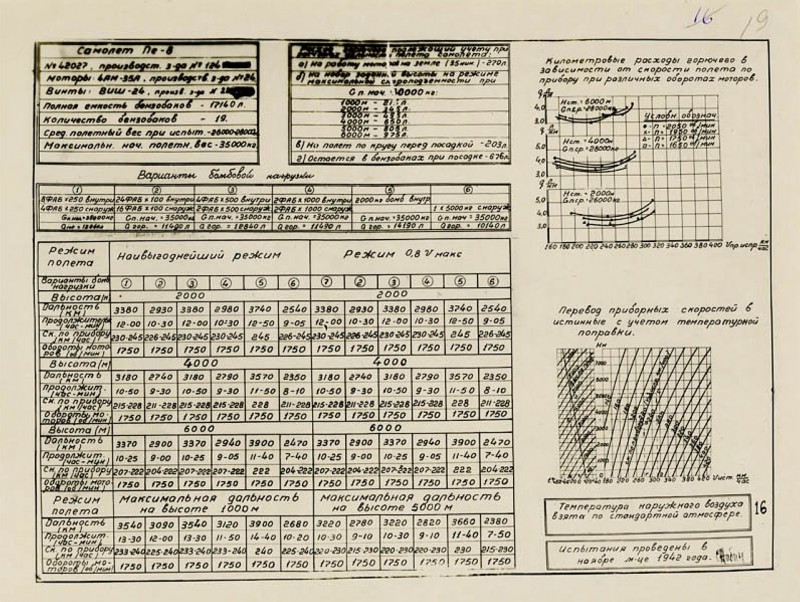 16
19
Самолет Пе-8
№42027, производст. з-да №124
Моторы: 4АМ-35А, производств з-да №24
Винты: ВИШ-24, произв. з-да
Полная емкость бензобаков - 17140 л.
Количество бензобаков - 19.
Сред. полетный вес при испыт. -26000-28000
Максимальн. нач. полетн. вес - 35000 кг.
подлежащий учету при
самолета:
а) на работу мотор. на земле (35мин) -270л.
б) на набор задан. высоты на режиме
максимальной скороподъемности при
Gп.нач. = 30000кг:
1000м -
2000м -
3000м -
4000м - 650л.
5000м - 808л.
6000м - 973л.
в) На полет по кругу перед посадкой -203л.
г) Остается в бензобаках при посадке -676л.
Варианты бомбовой нагрузки
① ② ③ ④ ⑤ ⑥
8ФАБ×250 внутри 24ФАБ×100 внутри 4ФАБ×500 внутри 2ФАБ×1000 внутри 2000кг бомб внутр
4ФАБ×250 снаруж 16ФАБ×100 снаруж 2ФАБ×500 снаруж 2ФАБ×1000 снаруж 1×5000кг снаруж
Gп.нач.=35000кг Gп.нач.=35000кг Gп.нач.=35000кг Gп.нач.=35000кг Gп.нач.=35000кг
Qгор.=11490л Qгор.=12840л Qгор.=11490л Qгор.=14190л Qгор.=10140л
Режим полета Наивыгоднейший режим Режим 0,8 V макс
Варианты бомб нагрузки ① ② ③ ④ ⑤ ⑥ ② ③ ④ ⑤ ⑥
Высота(м) 2000 2000
Дальность (км) 3380 2930 3380 2980 3740 2540 3380 2930 3380 2980 3740 2540
Продолжит. (час-мин) 12-00 10-30 12-00 10-30 12-50 9-05 12-00 10-30 12-00 10-30 12-50 9-05
Ск. по прибору (км/час) 230-245 226-245 230-245 230-245 245 226-245 230-245 226-245 230-245 230-245 245 226-245
Обороты моторов (об/мин) 1750 1750 1750 1750 1750 1750 1750 1750 1750 1750 1750 1750
Высота (м) 4000 4000
Дальность (км) 3180 2740 3180 2790 3570 2350 3180 2740 3180 2790 3570 2350
Продолжит. (час-мин) 10-50 9-30 10-50 9-30 11-50 8-10 10-50 9-30 10-50 9-30 11-50 8-10
Ск. по прибору (км/час) 215-228 211-228 215-228 215-228 228 211-228 215-228 211-228 215-228 215-228 228 211-228
Обороты моторов (об/мин) 1750 1750 1750 1750 1750 1750 1750 1750 1750 1750 1750 1750
Высота (м) 6000 6000
Дальность (км) 3370 2900 3370 2940 3900 2470 3370 2900 3370 2940 3900 2470
Продолжит. (час-мин) 10-25 9-00 10-25 9-05 11-40 7-40 10-25 9-00 10-25 9-05 11-40 7-40
Ск. по прибору (км/час) 207-222 204-222 207-222 207-222 222 204-222 207-222 204-222 207-222 207-222 222 204-222
Обороты моторов (об/мин) 1750 1750 1750 1750 1750 1750 1750 1750 1750 1750 1750 1750
Режим полета Максимальная дальность на высоте 1000м Максимальная дальность на высоте 5000м
Дальность (км) 3540 3090 3540 3120 3900 2680 3220 2780 3220 2820 3660 2380
Продолжит. (час-мин) 13-30 12-00 13-30 11-50 14-40 10-20 10-30 9-10 10-30 9-10 11-40 7-50
Ск. по прибору (км/час) 233-240 225-240 233-240 233-240 240 225-240 220-230 215-230 220-230 220-230 230 215-230
Обороты моторов (об/мин) 1750 1750 1750 1750 1750 1750 1750 1750 1750 1750 1750 1750
Километровые расходы горючего в
зависимости от скорости полета по
прибору при различных оборотах моторов.
Нст.=6000м
Gп.ср.=28000кг
Условн. обознач.
n-2050 об/мин
n-1850 об/мин
n-1750 об/мин
n-1650 об/мин
Нст=4000м
Gп.ср.=28000кг
Нст.=2000м
Gп.ср=28000кг
160 180 200 220 240 260 280 300 320 340 360 380 400 Vпр.испр км/час
Перевод приборных скоростей в
истинные с учетом температурной
поправки.
180 200 220 240 260 280 300 320 340 360 380 400 Vист. км/час
Температура наружного воздуха
взята по стандартной атмосфере.
16
Испытания проведены в
ноябре м-це 1942 года.